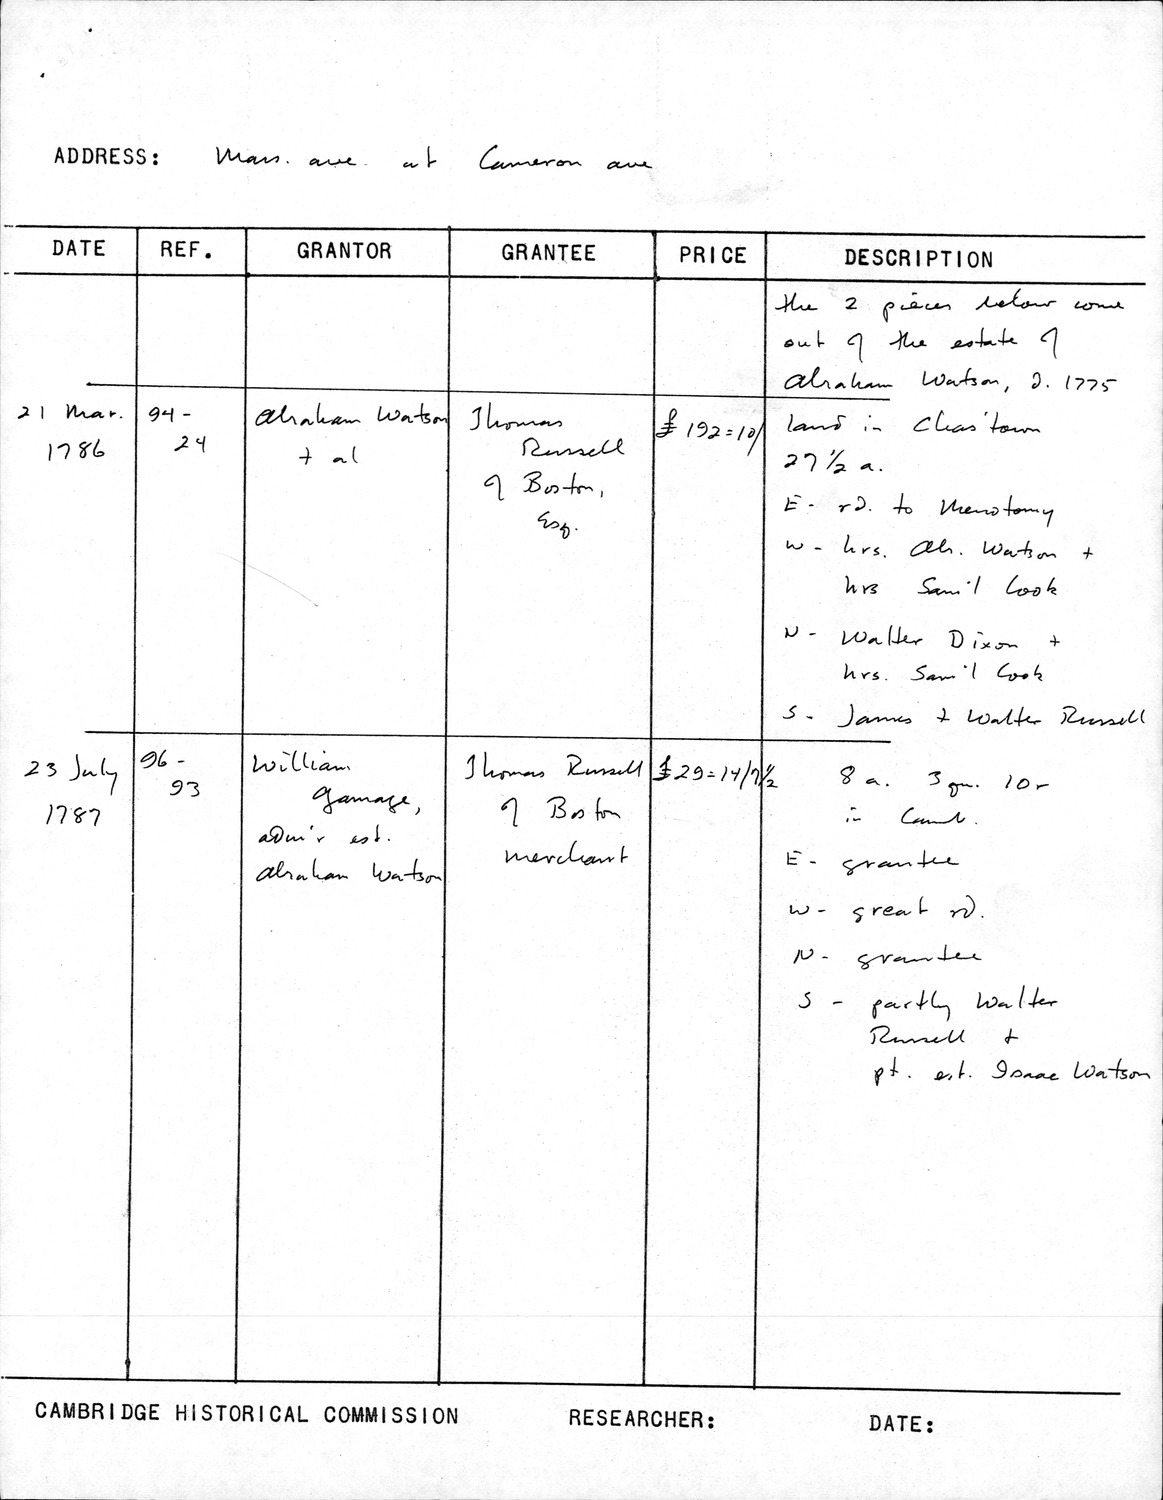 ADDRESS: Mass. ave. at Cameron ave
DATE REF. GRANTOR GRANTEE PRICE DESCRIPTION
the 2 pieces below come
out of the estate of
Abraham Watson, d. 1775
21 Mar.
1786
94-
24
Abraham Watson
+ al
Thomas
Russell
of Boston,
Esq.
£192=10/
land in Chas'town
27 1/2 a.
E- rd. to Menotomy
W- hrs. Ab. Watson +
hrs Sam'l Cook
N- Walter Dixon +
hrs. Sam'l Cook
S- James + Walter Russell
23 July
1787
96-
93
William
Gamage,
adm'r est.
Abraham Watson
Thomas Russell
of Boston
merchant
£29=14/7 1/2
8 a. 3 qu. 10 r
in Camb.
E- grantee
W- great rd.
N- grantee
S - partly Walter
Russell +
pt. est. Isaac Watson
CAMBRIDGE HISTORICAL COMMISSION RESEARCHER: DATE: